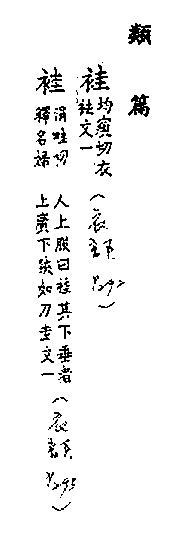 類篇
袿
均窺切衣
袪文一
袿
涓畦切
釋名婦
人上服曰袿其下垂者
上廣下狹如刀圭文一